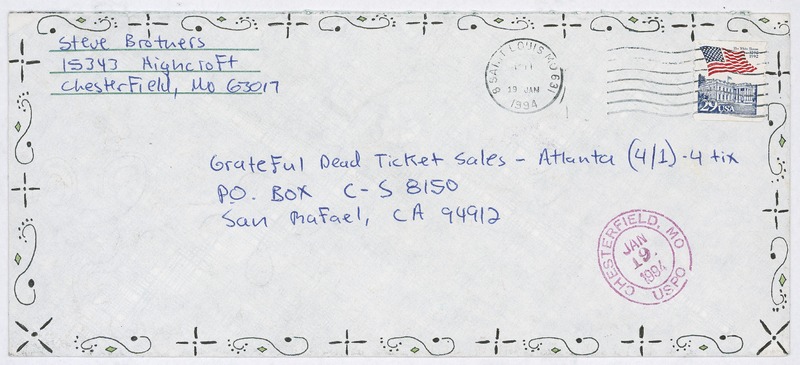 Steve Brothers
15343 Highcroft
Chesterfield, Mo 63017
SAINT LOUIS MO 631
19 JAN
1994
29 USA
Grateful Dead Ticket Sales - Atlanta (4/1) - 4 tix
P.O. Box C-S 8150
San Rafael, CA 94912
CHESTERFIELD, MO
JAN
19
1994
USPO